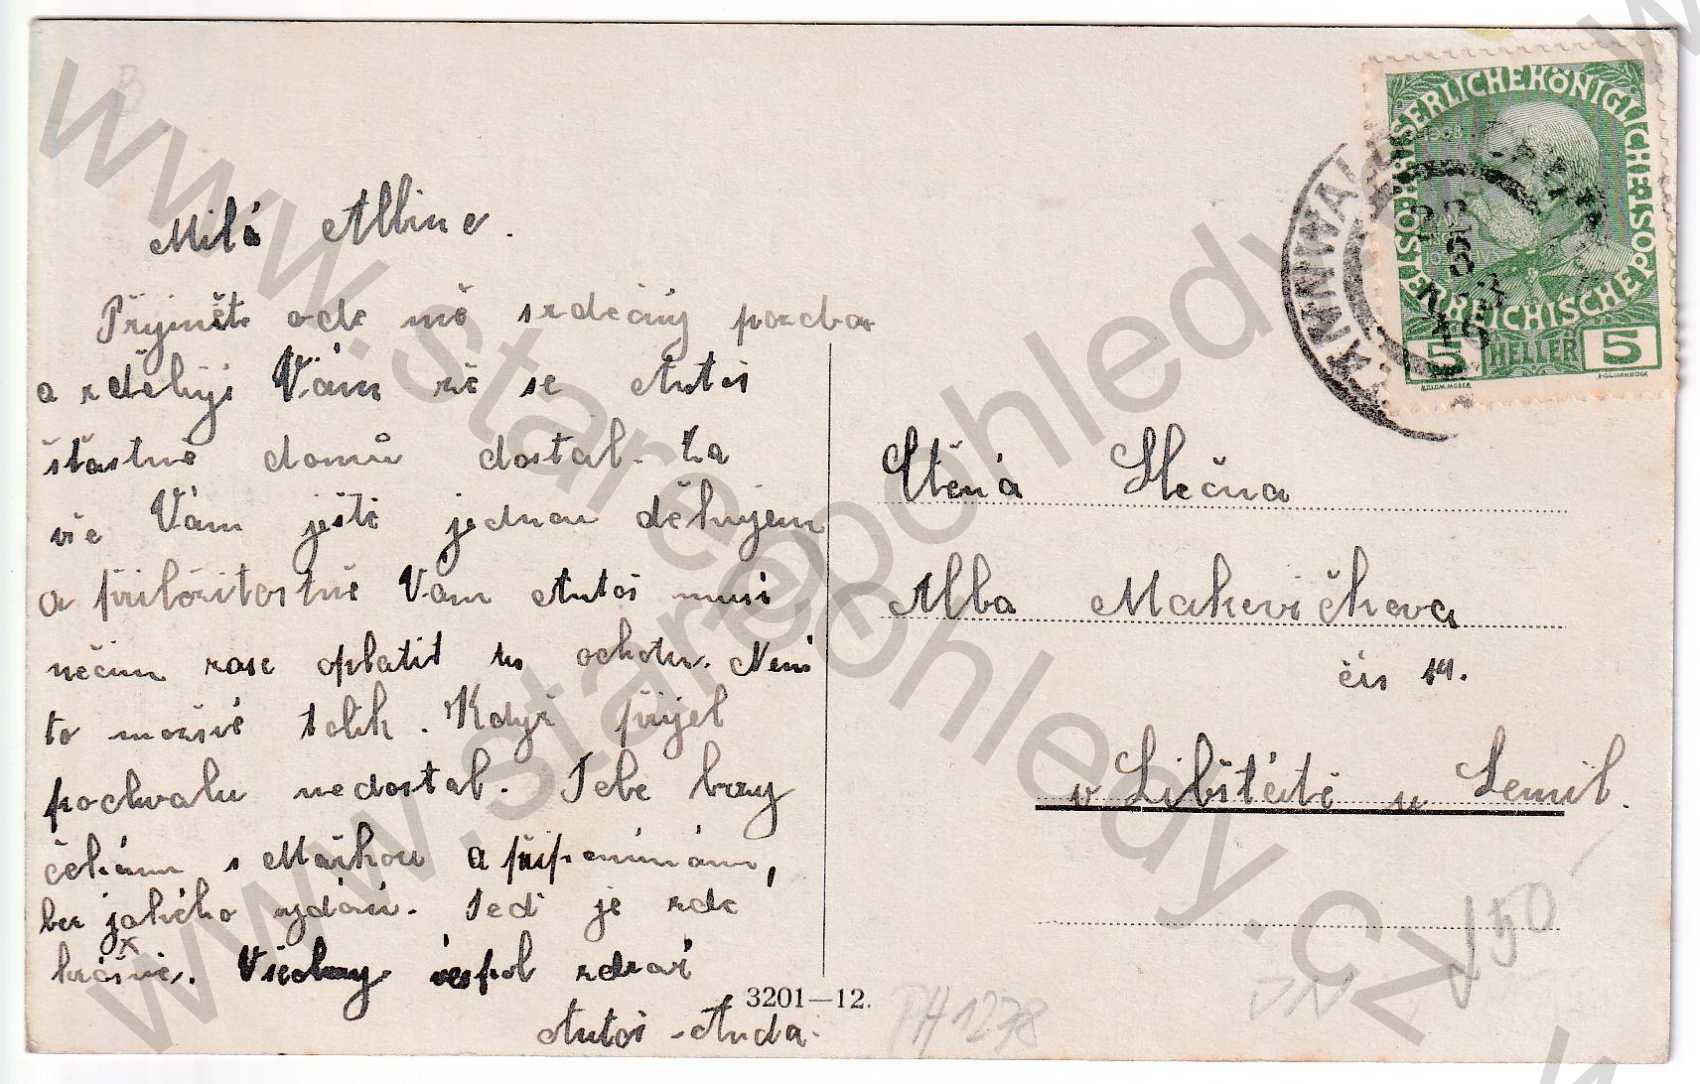 Milá Albine.
Přijměte ode mě srdečný pozdra
a zděluji Vám že se Antoš
šťastně domů dostal. Za
vše Vám ještě jednou děkujem
a příležitostně Vám Antoš musí
něčím zase oplatit tu ochotu. Není
to možné tolik. Když přijel
pochvalu nedostal. Tebe brzy
čekám s Mařkou a připomínám,
bez jakého vydání. Teď je zde
krásně. Všeobzy zdraví
Antoš - Anda.
3201—12.
Ctěná Slečna
Alba Makovičkova
čís 14.
v Libštátě u Semil.
KAISERLICHE KÖNIGLICHE
ÖSTERREICHISCHE POST
1908
5 HELLER 5
TANNWALD
22
5
13
PH1278
150
www.stare-pohledy.cz
www.stare-pohledy.cz